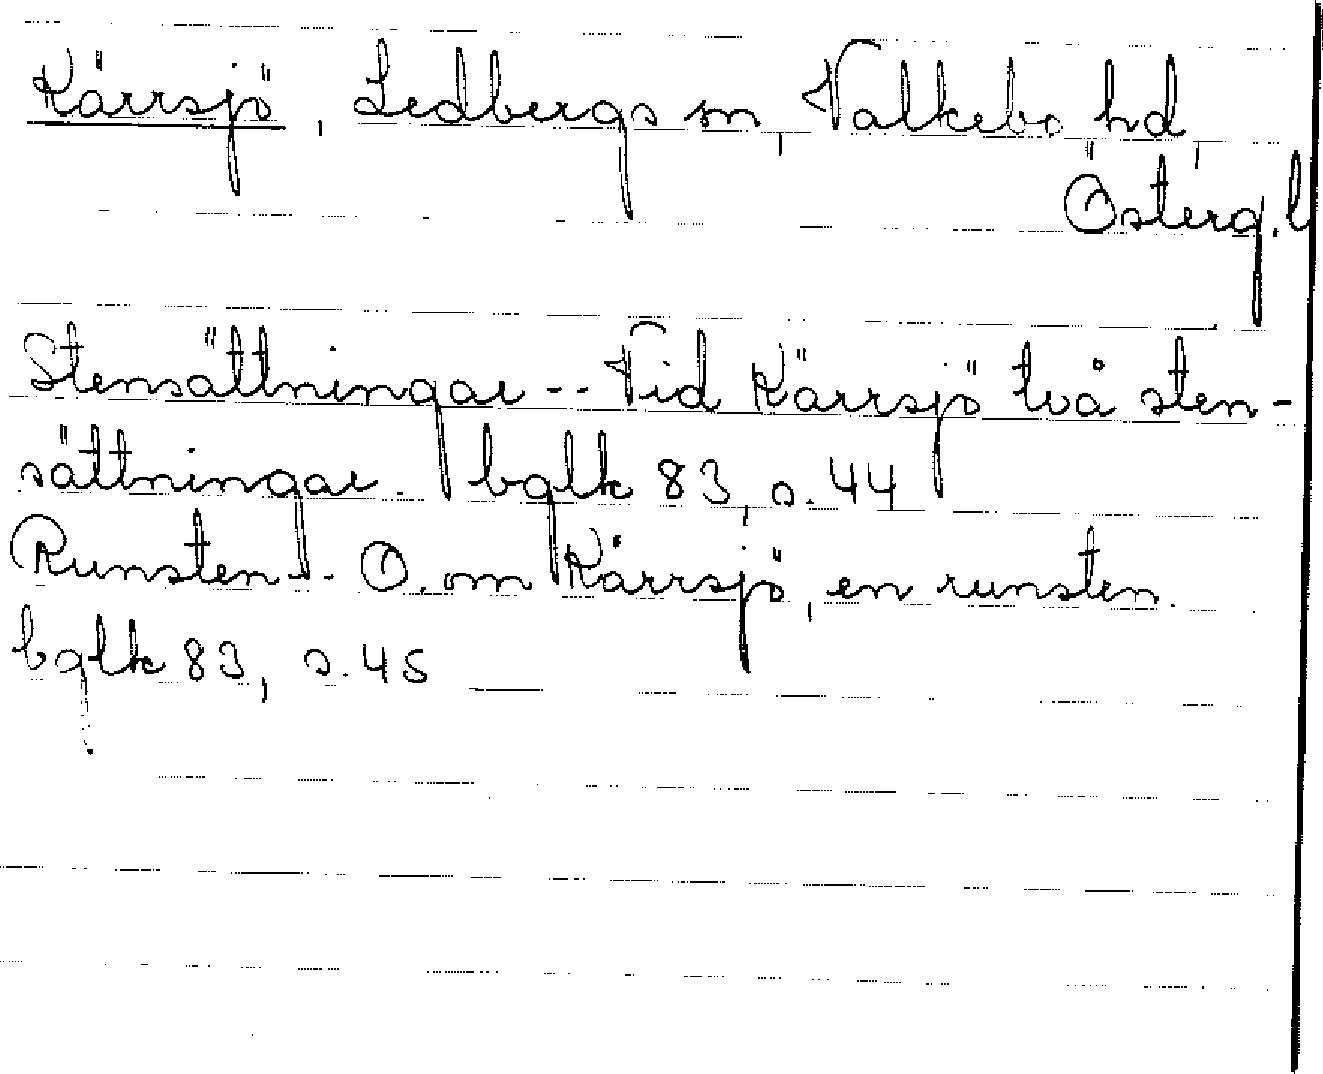 Kärrsjö, Ledbergs sn, Valkebo hd,
Österg. l
Stensättningar -- Vid Kärrsjö två sten-
sättningar. bglk 83, s. 44
Runsten -- O. om Kärrsjö, en runsten.
bglk 83, s. 45